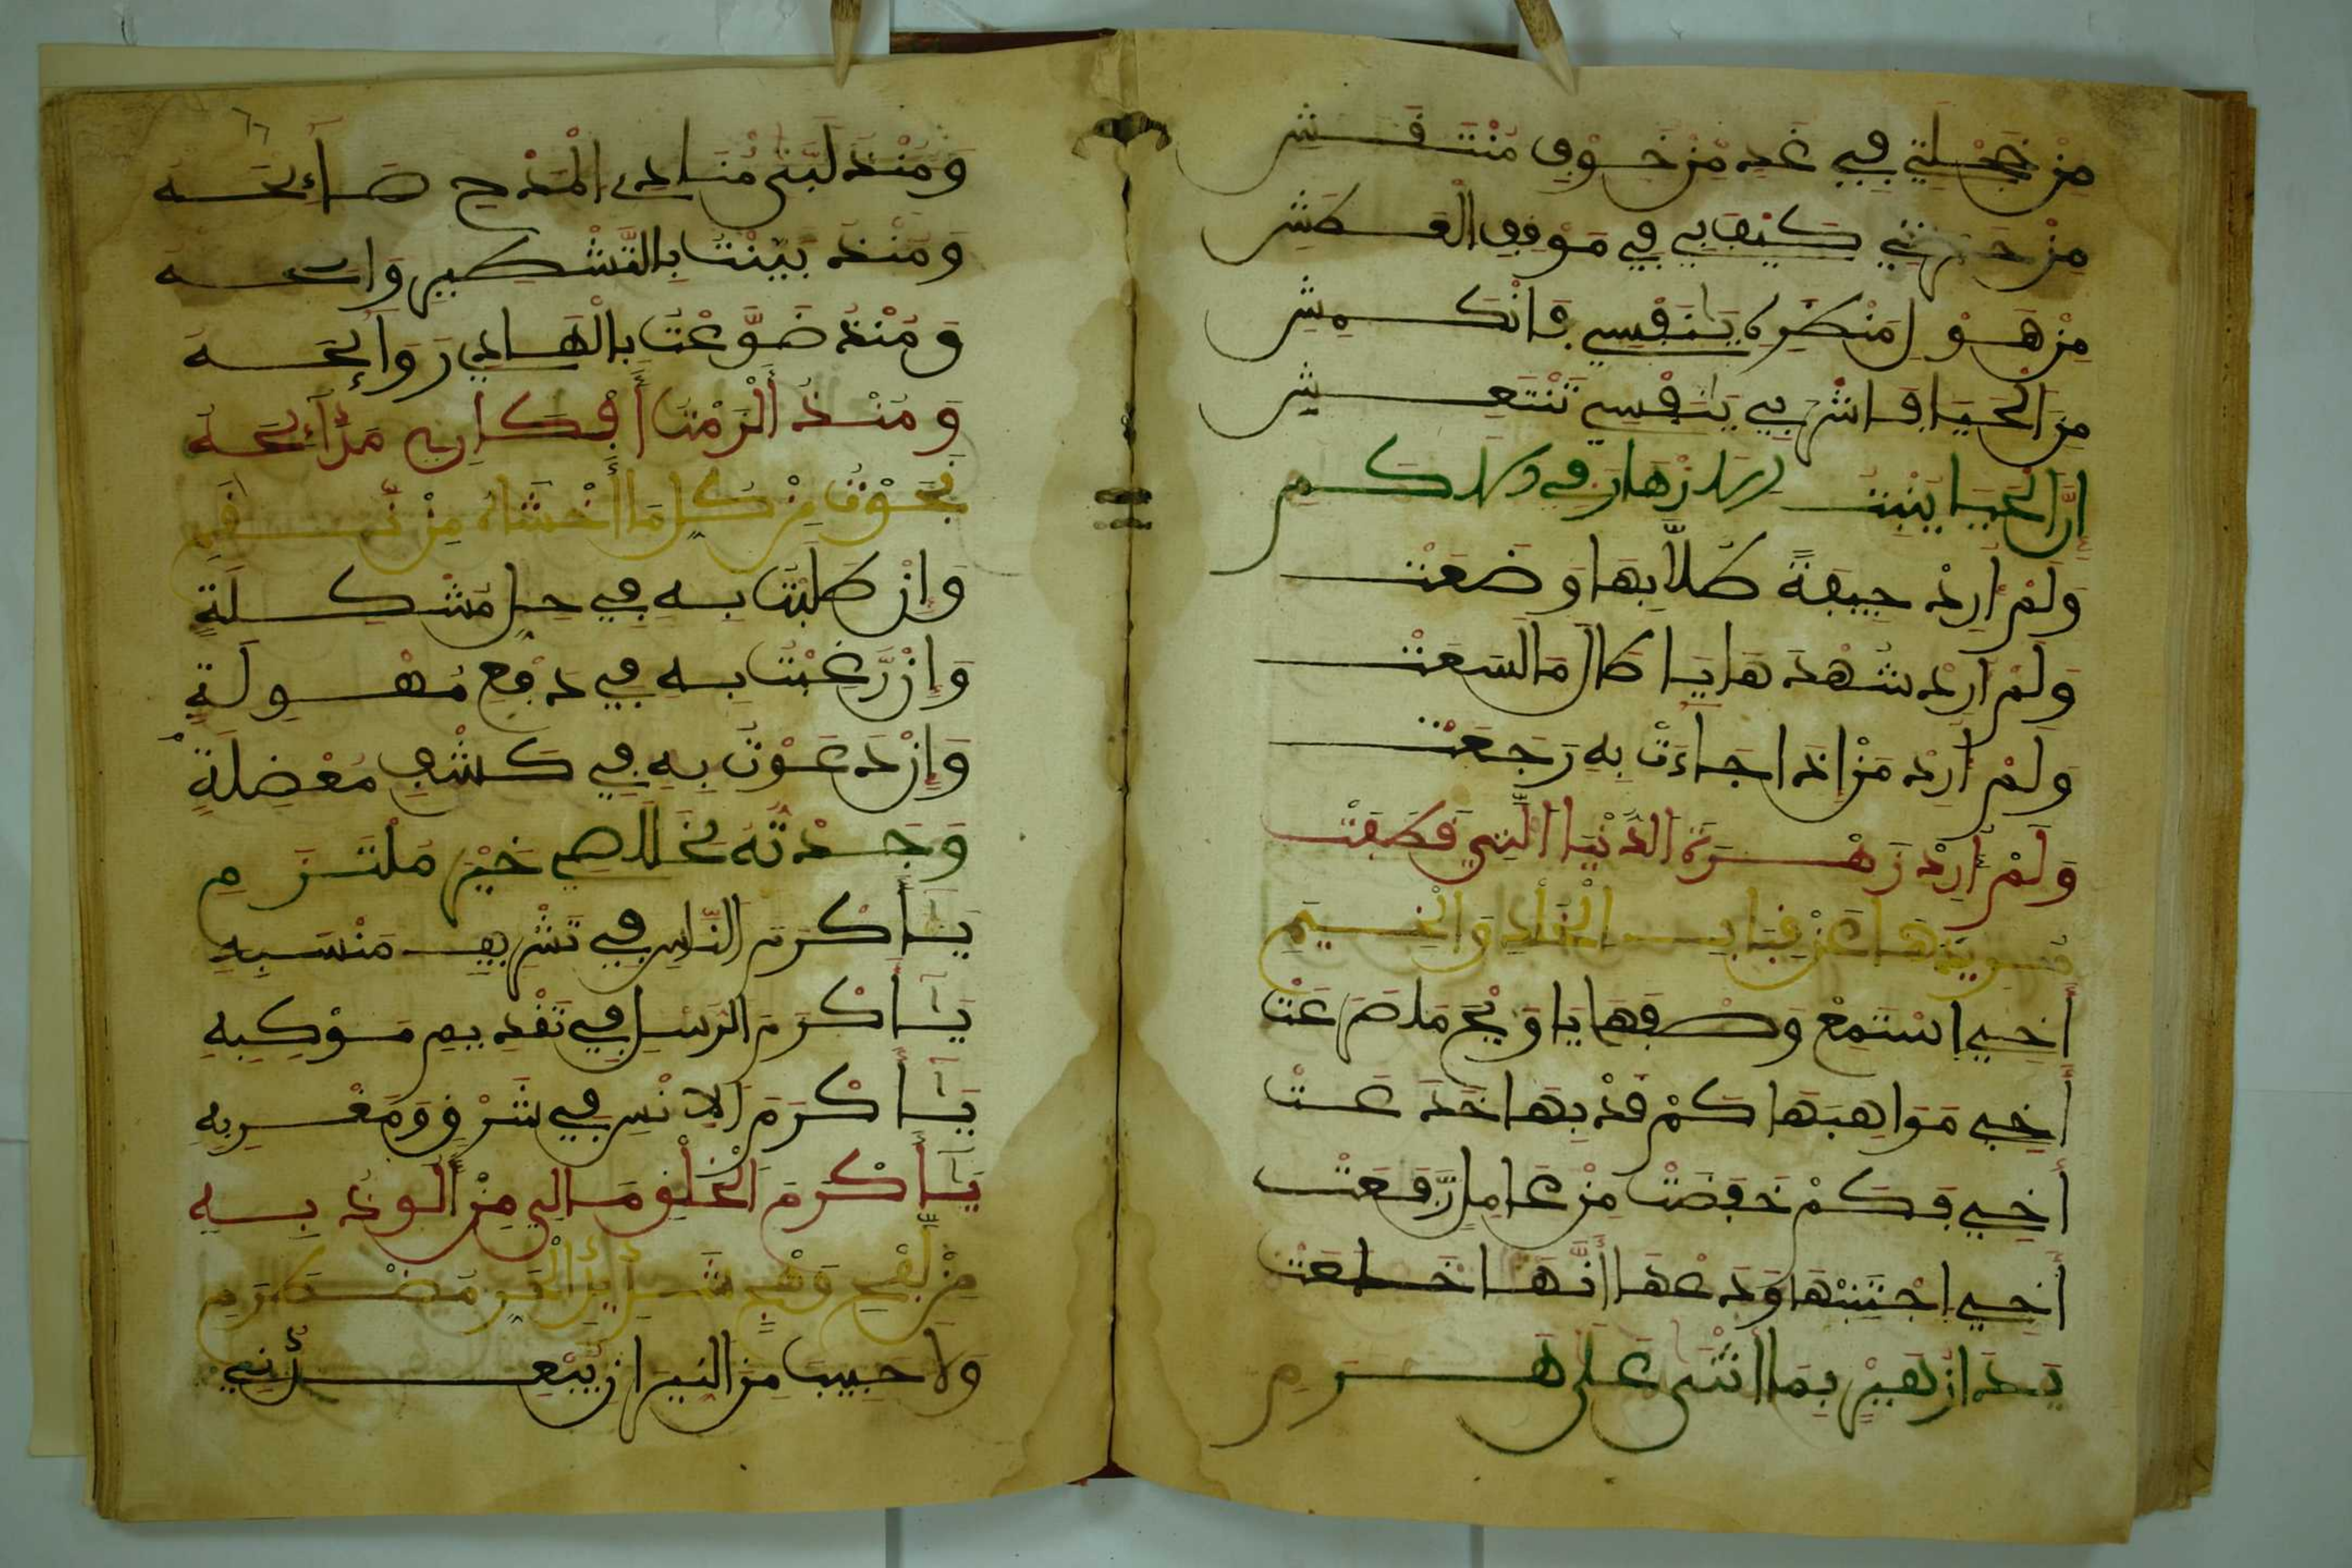 مِنْ خَجْلَتِي فِي غَدٍ مِنْ خَوْفِ مُنْتَقِشِ
مِنْ حَسْرَتِي كَيْفَ بِي فِي مَوْقِفِ الْعَطَشِ
مِنْ هَوْلِ مَنْظَرِهِ يَا نَفْسِي فَانْكَمِشِ
مِنَ الْحَيَا فَاشْرَبِي يَا نَفْسِي تَنْتَعِشِ
إِنَّ الْحَيَا يُنْبِتُ الْأَزْهَارَ فِي الْأَكَمِ
وَلَمْ أُرِدْ جِيفَةً طُلَّابَهَا وَضَعَتْ
وَلَمْ أُرِدْ شُهْدَهَا يَا طَالَمَا لَسَعَتْ
وَلَمْ أُرِدْ مَنْ إِذَا جَاءَتْ بِهِ رَجَعَتْ
وَلَمْ أُرِدْ زَهْرَةَ الدُّنْيَا الَّتِي قَطَفَتْ
أُخَيِّ اسْتَمِعْ وَصْفَهَا يَا وَيْحَ مَا صَرَعَتْ
أُخَيِّ مَوَاهِبَهَا كَمْ قَدْ بِهَا خَدَعَتْ
أُخَيِّ فَكَمْ خَفَضَتْ مِنْ عَامِلٍ رَفَعَتْ
أُخَيِّ اجْتَنِبْهَا وَدَعْهَا إِنَّهَا خَدَعَتْ
يَدَا زُهَيْرٍ بِمَا أَثْنَى عَلَى هَرِمِ
وَمُنْذُ لَبَّى مُنَادِي الْمَدْحِ صَائِحَهُ
وَمُنْذُ بَيَّنْتُ بِالتَّشْطِيرِ وَاضِحَهُ
وَمُنْذُ ضَوَّعْتُ بِالْهَادِي رَوَائِحَهُ
وَمُنْذُ أَلْزَمْتُ أَفْكَارِي مَدَائِحَهُ
نَجَوْتُ مِنْ كُلِّ مَا أَخْشَاهُ مِنْ نِقَمِ
وَإِنْ طَلَبْتُ بِهِ فِي حِلِّ مُشْكِلَةٍ
وَإِنْ رَغِبْتُ بِهِ فِي دَفْعِ مُهْوِلَةٍ
وَإِنْ دَعَوْتُ بِهِ فِي كَشْفِ مُعْضِلَةٍ
وَجَدْتُهُ لِخَلَاصِي خَيْرَ مُلْتَزِمِ
يَا أَكْرَمَ النَّاسِ فِي تَشْرِيفِ مَنْسَبِهِ
يَا أَكْرَمَ الرُّسْلِ فِي تَقْدِيمِ مَوْكِبِهِ
يَا أَكْرَمَ الْإِنْسِ فِي شَرْقٍ وَمَغْرِبِهِ
يَا أَكْرَمَ الْخَلْقِ مَا لِي مَنْ أَلُوذُ بِهِ
وَلَا حَبِيبَ مِنَ النِّيرَانِ يُبْعِدُنِي